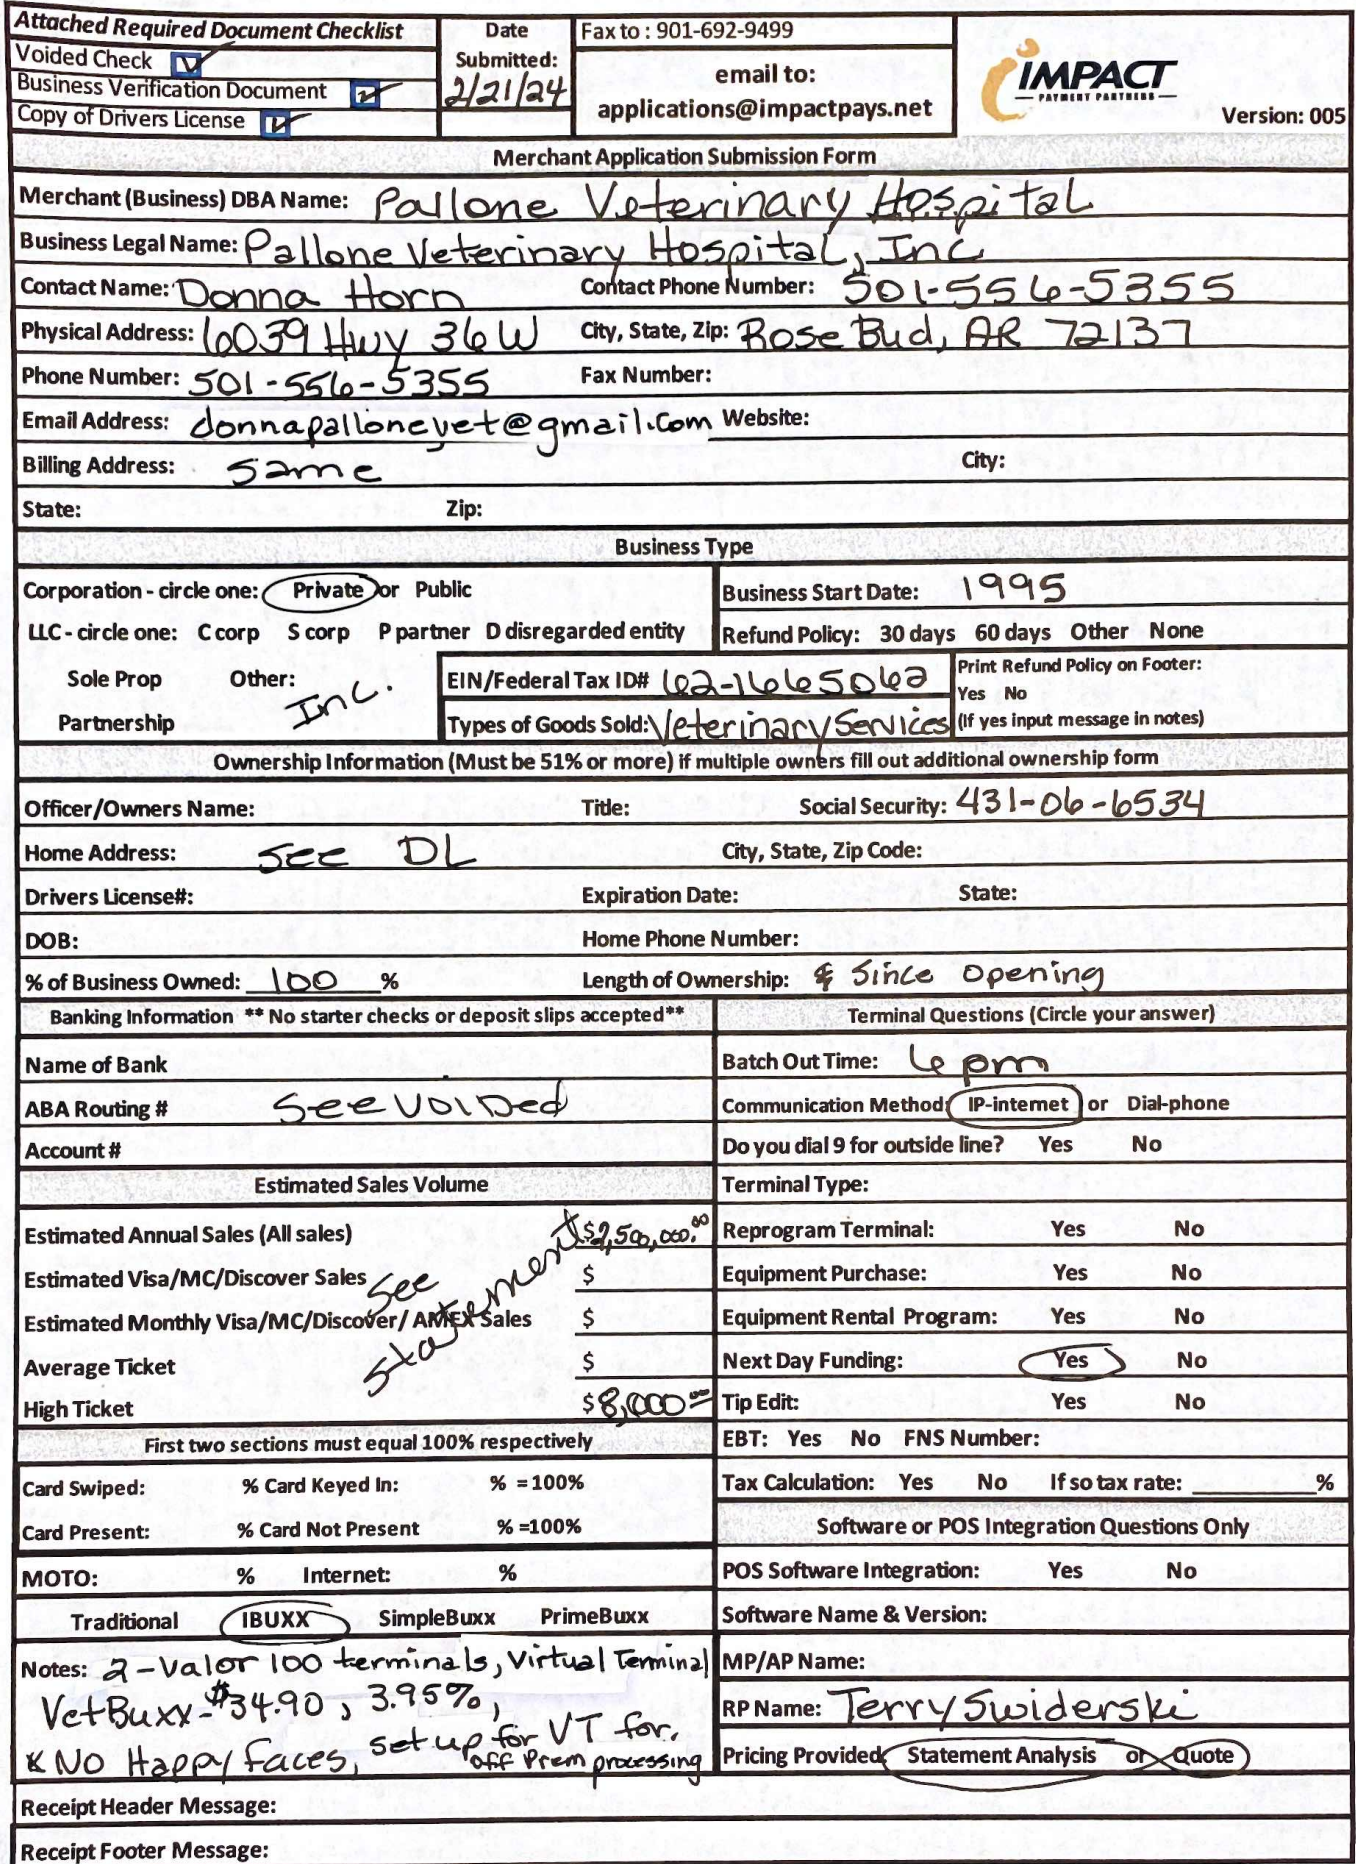 Attached Required Document Checklist
Voided Check
Business Verification Document
Copy of Drivers License
Date
Submitted:
2/21/24
Fax to : 901-692-9499
email to:
applications@impactpays.net
IMPACT
PAYMENT PARTNERS
Version: 005
Merchant Application Submission Form
Merchant (Business) DBA Name: Pallone Veterinary Hospital
Business Legal Name: Pallone Veterinary Hospital, Inc
Contact Name: Donna Horn Contact Phone Number: 501-556-5355
Physical Address: 6039 Hwy 36 W City, State, Zip: Rose Bud, AR 72137
Phone Number: 501-556-5355 Fax Number:
Email Address: donnapallonevet@gmail.com Website:
Billing Address: same City:
State: Zip:
Business Type
Corporation - circle one: Private or Public
LLC - circle one: C corp S corp P partner D disregarded entity
Sole Prop Other: Inc.
Partnership
Business Start Date: 1995
Refund Policy: 30 days 60 days Other None
EIN/Federal Tax ID# 62-1665062
Types of Goods Sold: Veterinary Services
Print Refund Policy on Footer:
Yes No
(If yes input message in notes)
Ownership Information (Must be 51% or more) if multiple owners fill out additional ownership form
Officer/Owners Name: Title: Social Security: 431-06-6534
Home Address: see DL City, State, Zip Code:
Drivers License#: Expiration Date: State:
DOB: Home Phone Number:
% of Business Owned: 100 % Length of Ownership: Since opening
Banking Information ** No starter checks or deposit slips accepted**
Name of Bank
ABA Routing # See VOIDed
Account #
Estimated Sales Volume
Estimated Annual Sales (All sales) $2,500,000.00
Estimated Visa/MC/Discover Sales $
Estimated Monthly Visa/MC/Discover/ AMEX Sales $
See statement
Average Ticket $
High Ticket $8,000.00
First two sections must equal 100% respectively
Card Swiped: % Card Keyed In: % =100%
Card Present: % Card Not Present % =100%
MOTO: % Internet: %
Traditional IBUXX SimpleBuxx PrimeBuxx
Notes: 2-Valor 100 terminals, Virtual Terminal
VetBuxx-$34.90, 3.95%,
* No Happy faces, set up for VT for.
off Prem processing
Terminal Questions (Circle your answer)
Batch Out Time: 6 pm
Communication Method: IP-internet or Dial-phone
Do you dial 9 for outside line? Yes No
Terminal Type:
Reprogram Terminal: Yes No
Equipment Purchase: Yes No
Equipment Rental Program: Yes No
Next Day Funding: Yes No
Tip Edit: Yes No
EBT: Yes No FNS Number:
Tax Calculation: Yes No If so tax rate: %
Software or POS Integration Questions Only
POS Software Integration: Yes No
Software Name & Version:
MP/AP Name:
RP Name: Terry Swiderski
Pricing Provided Statement Analysis or Quote
Receipt Header Message:
Receipt Footer Message: